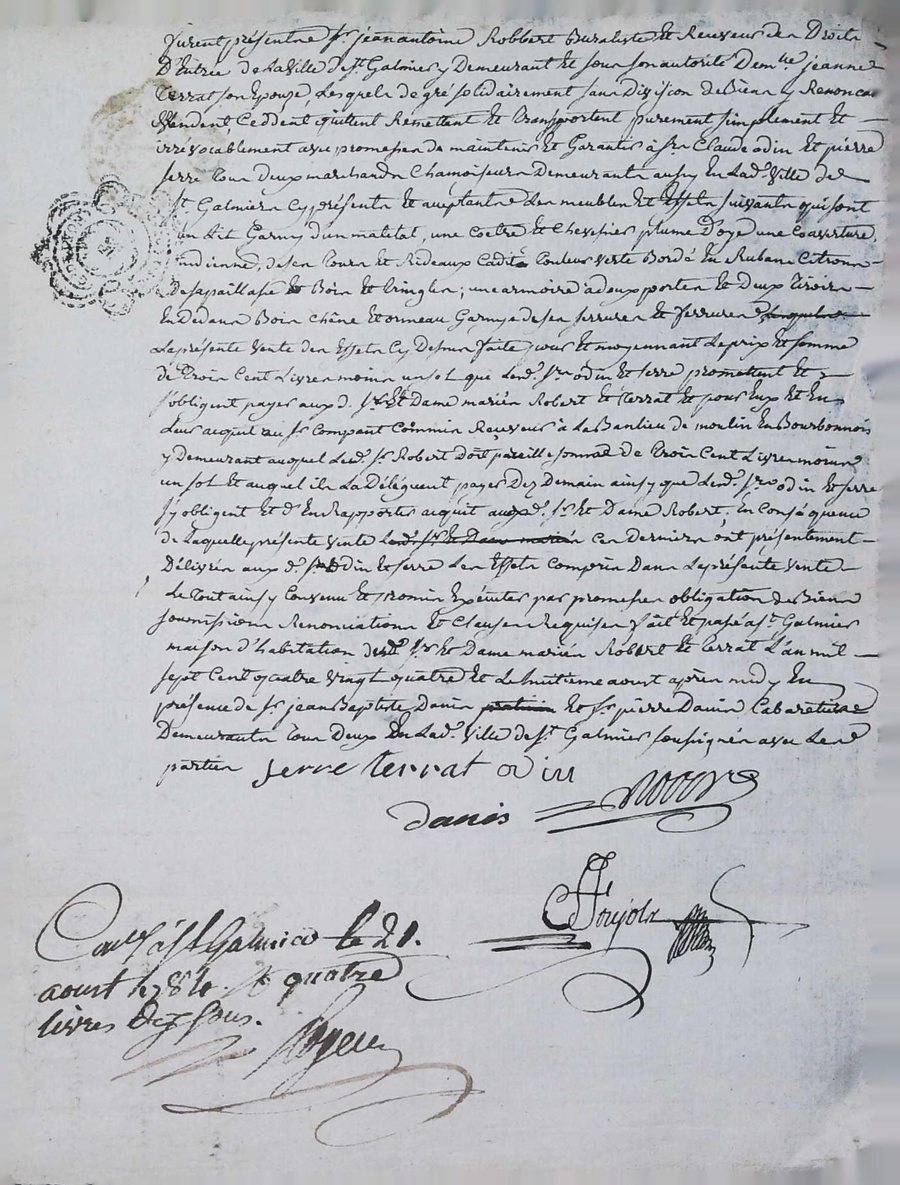 furent présents sr jean antoine Robbert Buraliste et Receveur des Droits
D'Entrée de la ville de st Galmier y Demeurant Et sous son autorité Demlle jeanne
terrat son Epouze, Lesquels de gré solidairement sans Division de Bien y Renoncant
vendent, Ceddent quittent Remettent Et transportent purement simplement et
irrévocablement avec promesse de maintenir Et Garantir à srs Claude odin Et pierre
serre tous deux marchands Chamoiseurs Demeurants aussy En Lade. ville de
st Galmier Cy présents Et acceptants Les meubles Et Effets suivants qui sont
un Lit Garny d'un matelat, une Coetre et Chevessier plume d'oye une Couverture
indienne, de ses tours et Rideaux Cadis Couleur verte Bordé En Rubans Citrons
De sa paillasse et Bois Et tringles; une armoire à deux portes Et Deux tiroirs
En Dedans Bois Chêne Et ormeau Garnye de ses serrures Et ferrures
La présente vente des Effets Cy Dessus faitte pour Et moyennant Le prix Et somme
de trois Cent Livres moins un sol que Lesd. srs odin Et serre promettent Et
s'obligent payer auxd. sr Et Dame mariés Robert Et terrat Et pour Eux Et En
Leur acquit au sr Compant Commis Receveur à La Banlieu de moulin En Bourbonnois
y demeurant auquel Led. sr Robert Doit pareille somme de trois Cent Livres moins
un sol Et auquel ils La Délèguent payer Dez Demain ainsy que Lesd. srs odin Et serre
s'y obligent Et d'En Rapporter acquit auxd. sr Et Dame Robert; En Conséquence
de Laquelle présente vente Lesd. sr Et Dame mariés Ces Derniers ont présentement
Délivrés aux d. srs odin Et serre Les Effets Compris Dans La présente vente
Le tout ainsy Convenu Et promis Exécuter par promesses obligation de Biens
soumissions Renonciations Et Clauses Requises fait Et passé à st Galmier
maison d'habitation desd. sr Et Dame mariés Robert Et terrat L'an mil
sept Cent quatre vingt quatre Et Le huitième aoust après midy En
présence de sr jean Baptiste Danis Et sr pierre Danis Cabaretiers
Demeurants tous Deux En Lade. ville de st Galmier soussignés avec Les
parties
serre terrat odin
danis
Poujols
Conlé à st Galmier le 21.
aoust 1784. R quatre
livres dix sous.